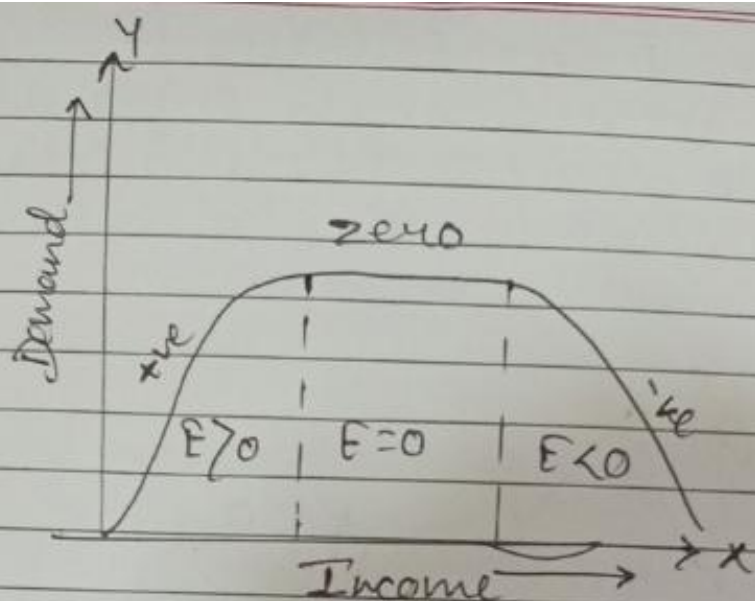 Y
Demand
zero
+ve
-ve
E>0
E=0
E<0
X
Income